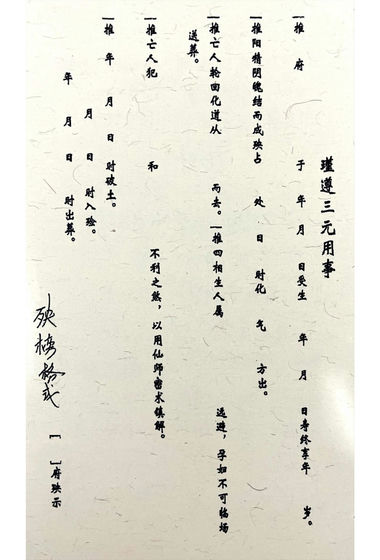 瑾遵三元用事
一推 府 于 年 月 日受生 年 月 日寿终享年 岁。
一推阳精阴魄结而成殃占 处 日 时化 气 方出。
一推亡人轮回化道从 而去。一推四相生人属 远避，孕妇不可临场
送葬。
一推亡人犯 和 不利之煞，以用仙师密术镇解。
一推 年 月 日 时破土。
月 日 时入殓。
年 月 日 时出葬。
[ ]府殃示
殃榜格式